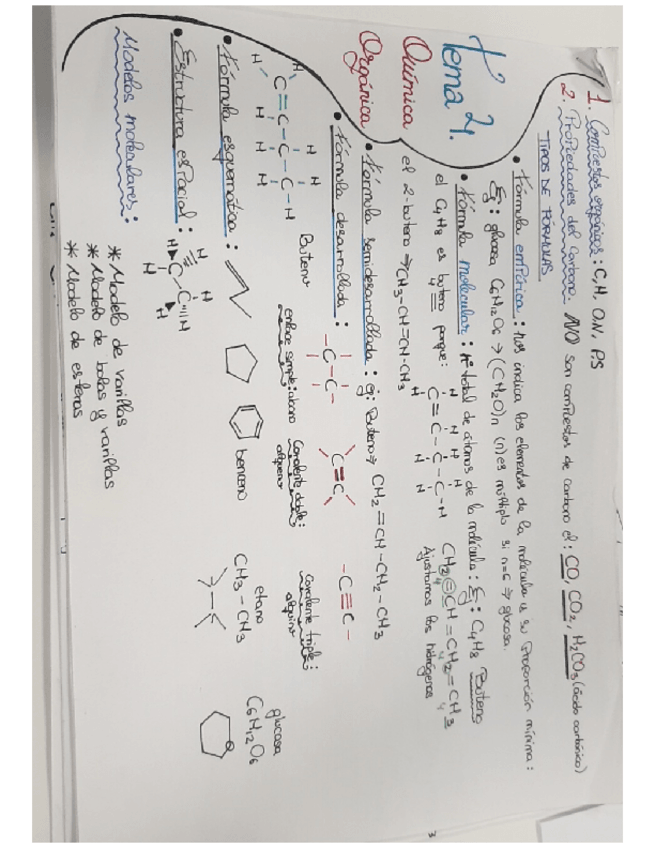 Tema 4.
Química
Orgánica
1. Compuestos orgánicos: C, H, O, N, P, S
2. Propiedades del Carbono: NO son compuestos de carbono el: CO, CO2, H2CO3 (ácido carbónico)
TIPOS DE FÓRMULAS
• Fórmula empírica: nos indica los elementos de la molécula y su proporción mínima:
Ej: glucosa C6H12O6 → (CH2O)n (n) es múltiplo si n=6 ⇒ glucosa.
• Fórmula molecular: nº total de átomos de la molécula: Ej: C4H8 Buteno
el C4H8 es buteno porque:
H H H
C=C-C-C-H
H H H
CH2=CH=CH2=CH3
4 4 4
Ajustamos los hidrógenos
el 2-buteno ⇒ CH3-CH=CH-CH3
• Fórmula semidesarrollada: ej: Buteno ⇒ CH2=CH-CH2-CH3
• Fórmula desarrollada:
-C-C-
C=C
-C≡C-
enlace simple: alcano
covalente doble: alqueno
covalente triple: alquino
H H H
C=C-C-C-H
H H H
Buteno
• Fórmula esquemática:
benceno
etano
CH3-CH3
glucosa
C6H12O6
• Estructura espacial:
H
C-C
H
H
Modelos moleculares:
* Modelo de varillas
* Modelo de bolas y varillas
* Modelo de esferas
3